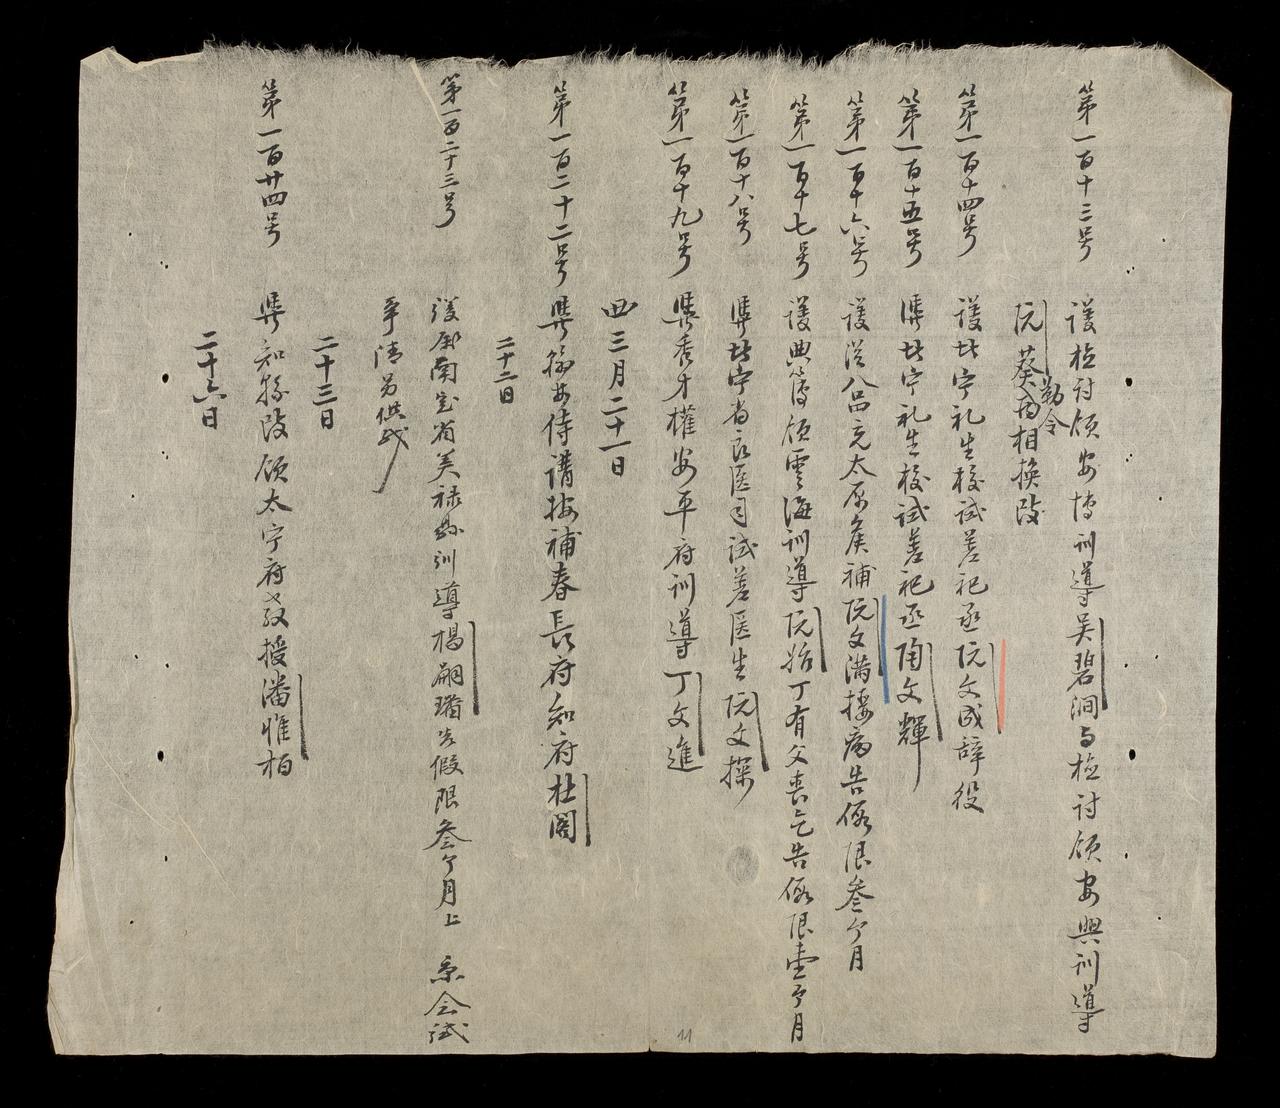 第一百十三号 護检討領安博訓導吴碧澗与检討領安興訓導
阮葵为相換改
勒令
第一百十四号 護北宁礼生校試差祀丞阮文成辞役
第一百十五号 準北宁礼生校試差祀丞陶文輝
第一百十六号 護從八品充太原候補阮文满搂病告假限叁个月
第一百十七号 護典簿領雲海訓導阮 丁有父喪乞告假限壹个月
第一百十八号 準北宁省良医司試差医生阮文探
第一百十九号 準秀才權安平府訓導丁文進
三月二十一日
第一百二十二号 準 侍講按補春長府知府杜阁
二十二日
第一百二十三号 護 南定省美禄縣訓導楊嗣 告假限叁个月上 京会試
争 另供試
二十三日
第一百廿四号 準知縣改領太宁府教授潘惟柏
二十六日
11